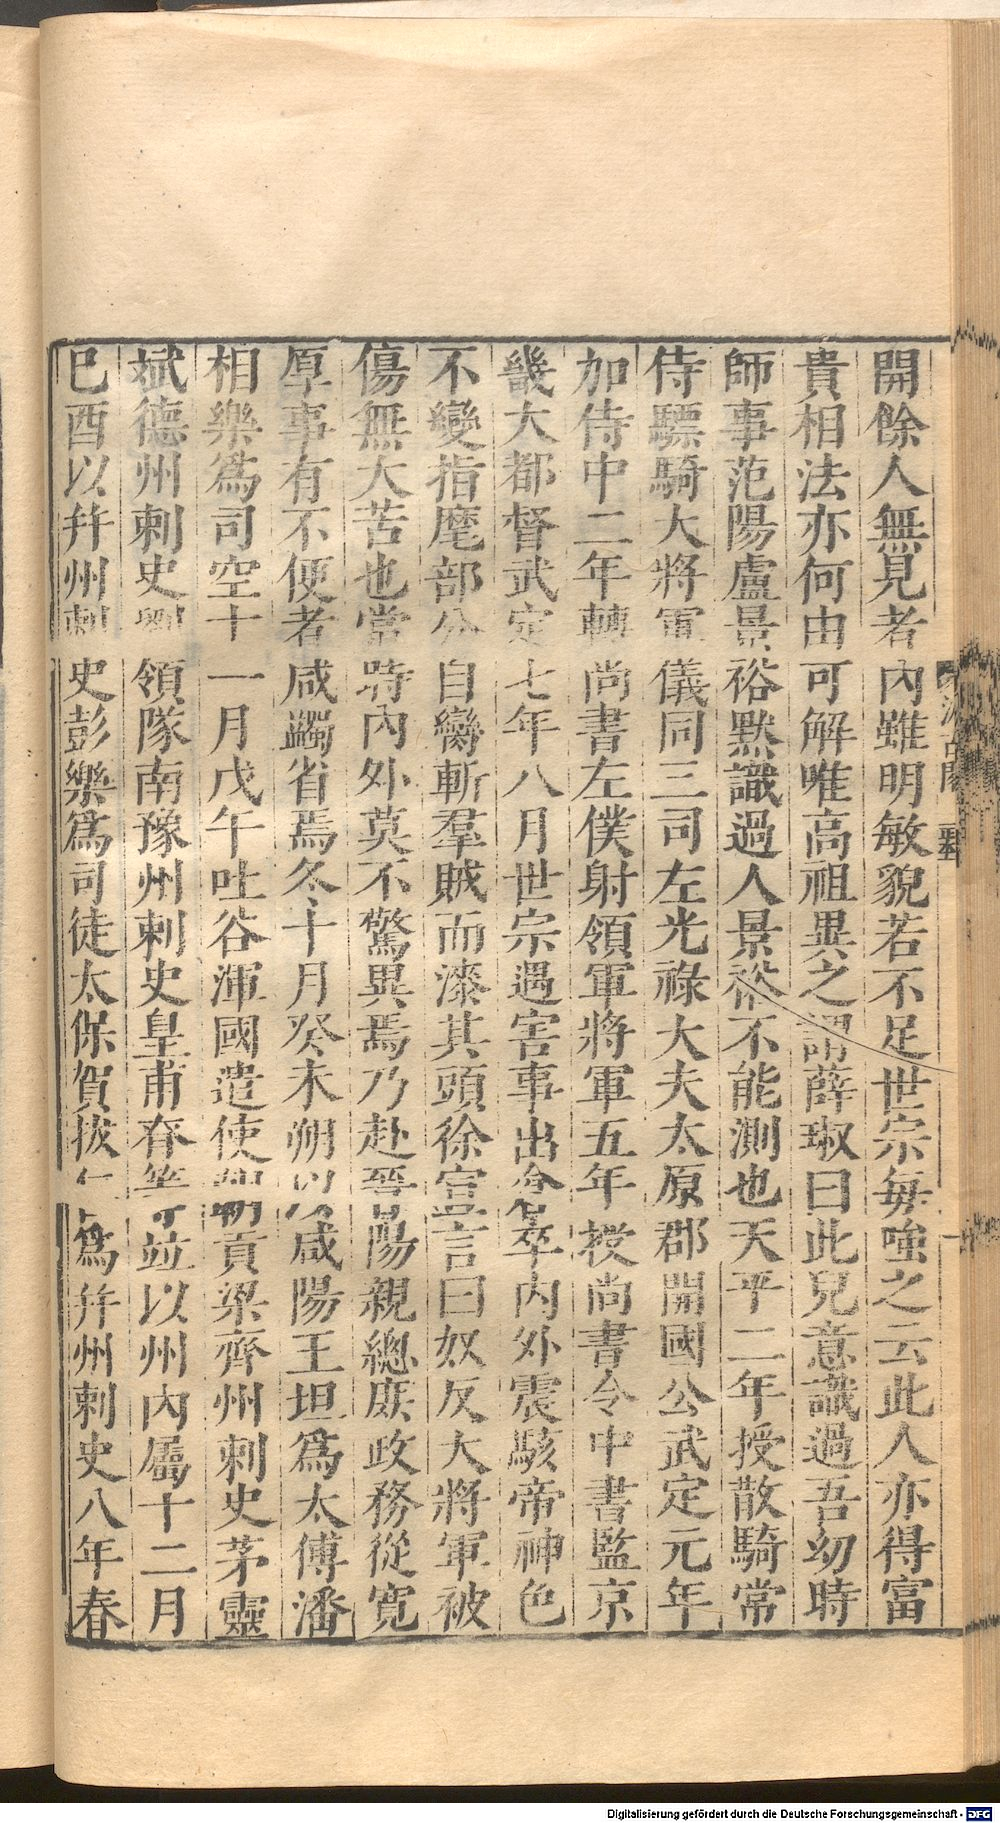 開餘人無見者內雖明敏貌若不足世宗每嗤之云此人亦得富
貴相法亦何由可解唯高祖異之謂薛琡曰此兒意識過吾幼時
師事范陽盧景裕默識過人景裕不能測也天平二年授散騎常
侍驃騎大將軍儀同三司左光祿大夫太原郡開國公武定元年
加侍中二年轉尚書左僕射領軍將軍五年授尚書令中書監京
畿大都督武定七年八月世宗遇害事出倉卒內外震駭帝神色
不變指麾部分自臠斬羣賊而漆其頭徐宣言曰奴反大將軍被
傷無大苦也當時內外莫不驚異焉乃赴晉陽親總庶政務從寬
厚事有不便者咸蠲省焉冬十月癸未朔以咸陽王坦爲太傅潘
相樂爲司空十一月戊午吐谷渾國遣使朝貢梁齊州刺史茅靈
斌德州刺史劉領隊南豫州刺史皇甫眘等並以州內屬十二月
巳酉以幷州刺史彭樂爲司徒太保賀拔仁爲幷州刺史八年春
汲古閣
Digitalisierung gefördert durch die Deutsche Forschungsgemeinschaft - DFG